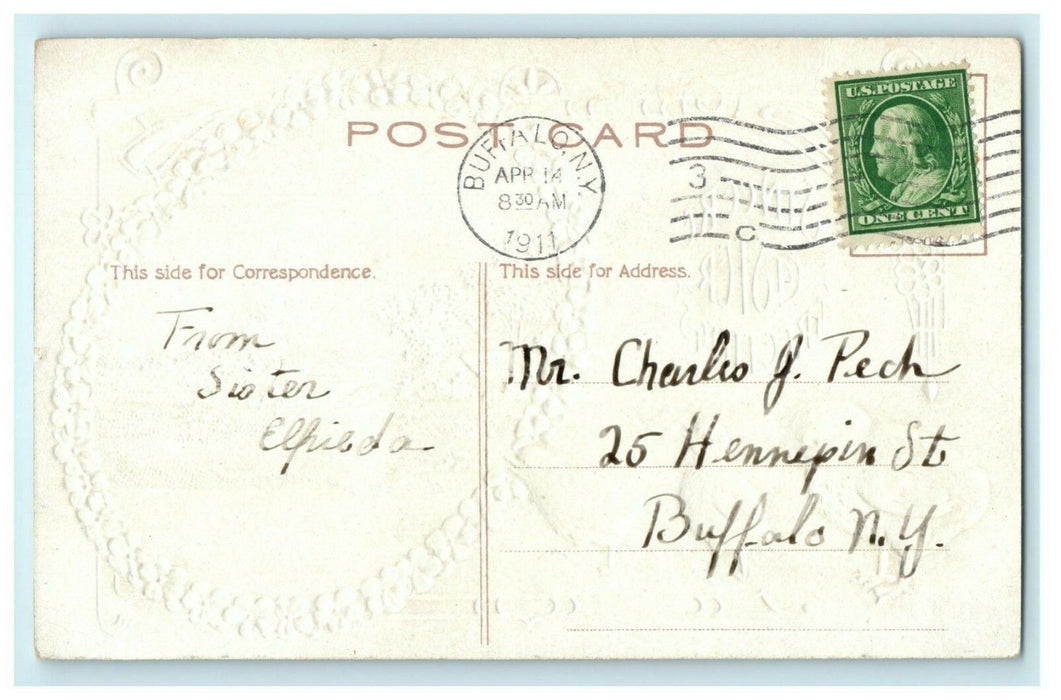 POST CARD
BUFFALO, N.Y.
APR 14
8 30 AM
1911
3
C
U.S. POSTAGE
ONE CENT
This side for Correspondence.
This side for Address.
From
Sister
Elfrieda
Mr. Charles J. Pech
25 Hennepin St
Buffalo N.Y.